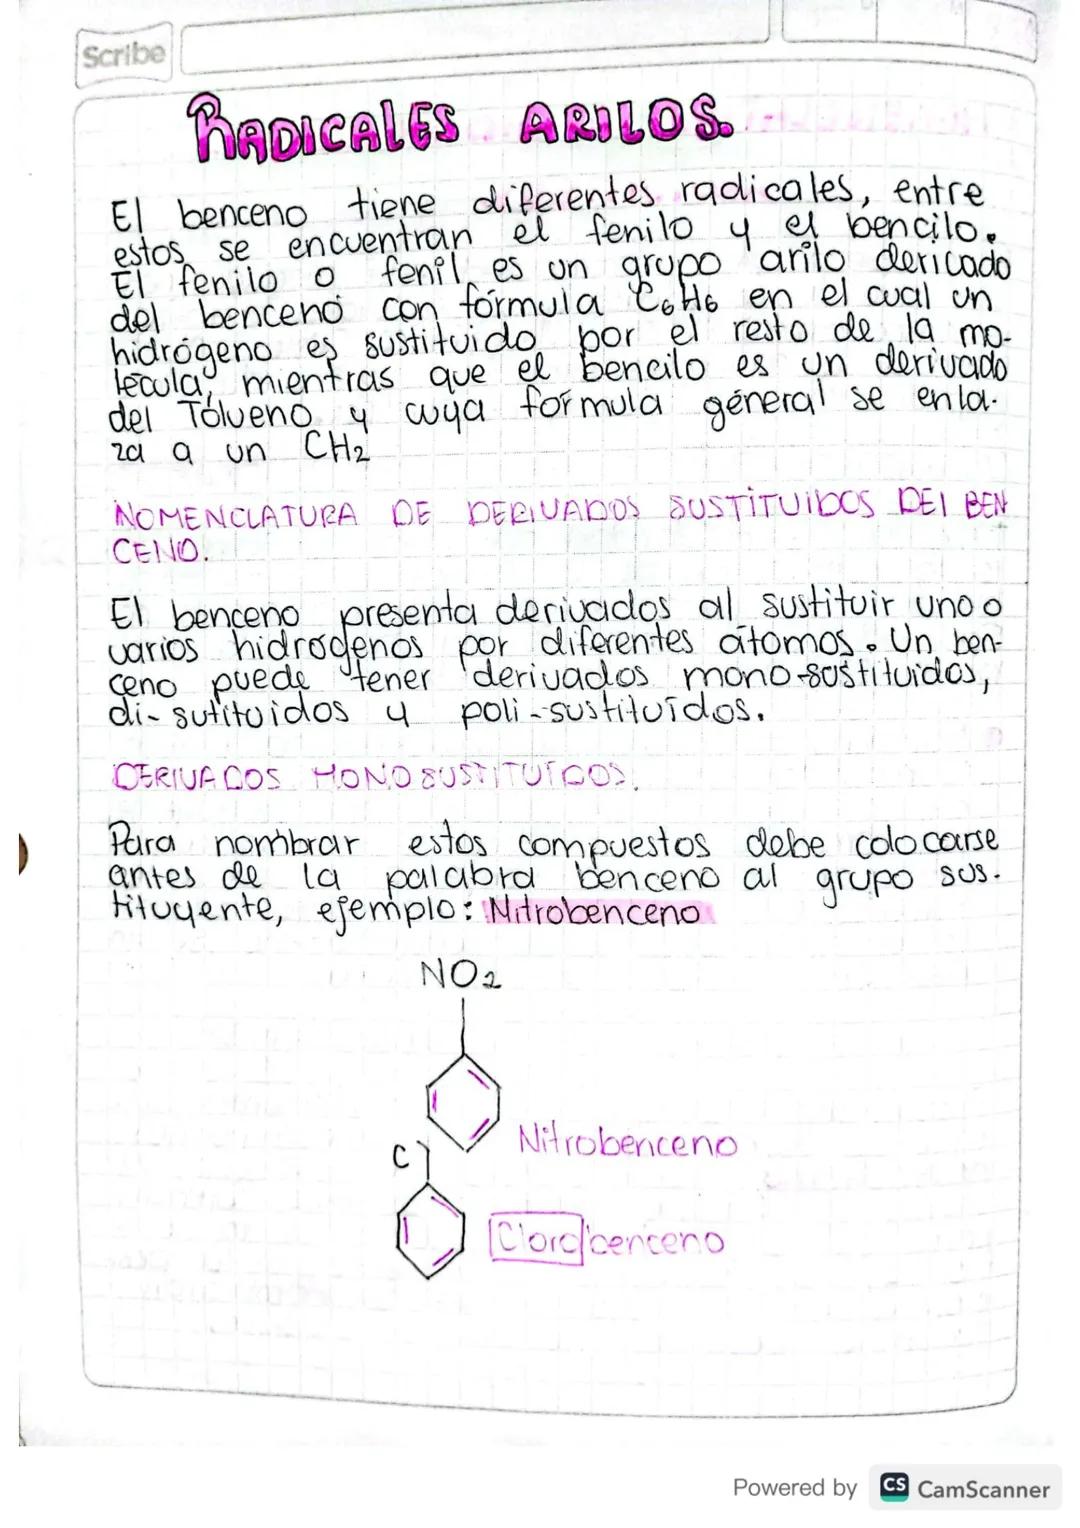 Scribe
RADICALES ARILOS.
El benceno tiene diferentes radicales, entre
estos se encuentran el fenilo y el bencilo.
El fenilo o fenil es un grupo arilo dericado
del benceno con fórmula C6H6 en el cual un
hidrógeno es sustituido por el resto de la mo-
lecula, mientras que el bencilo es un derivado
del Tolueno y cuya formula general se enla-
za a un CH2
NOMENCLATURA DE DERIVADOS SUSTITUIDOS DEL BEN
CENO.
El benceno presenta derivados al sustituir uno o
varios hidrogenos por diferentes átomos. Un ben-
ceno puede tener derivados mono-sustituidos,
di-sutituidos y poli-sustituídos.
DERIVADOS MONOSUSTITUIDOS.
Para nombrar estos compuestos debe colocarse
antes de la palabra benceno al grupo sus-
tituyente, ejemplo: Nitrobenceno
NO2
Nitrobenceno
Cl
Clorobenceno
Powered by CS CamScanner